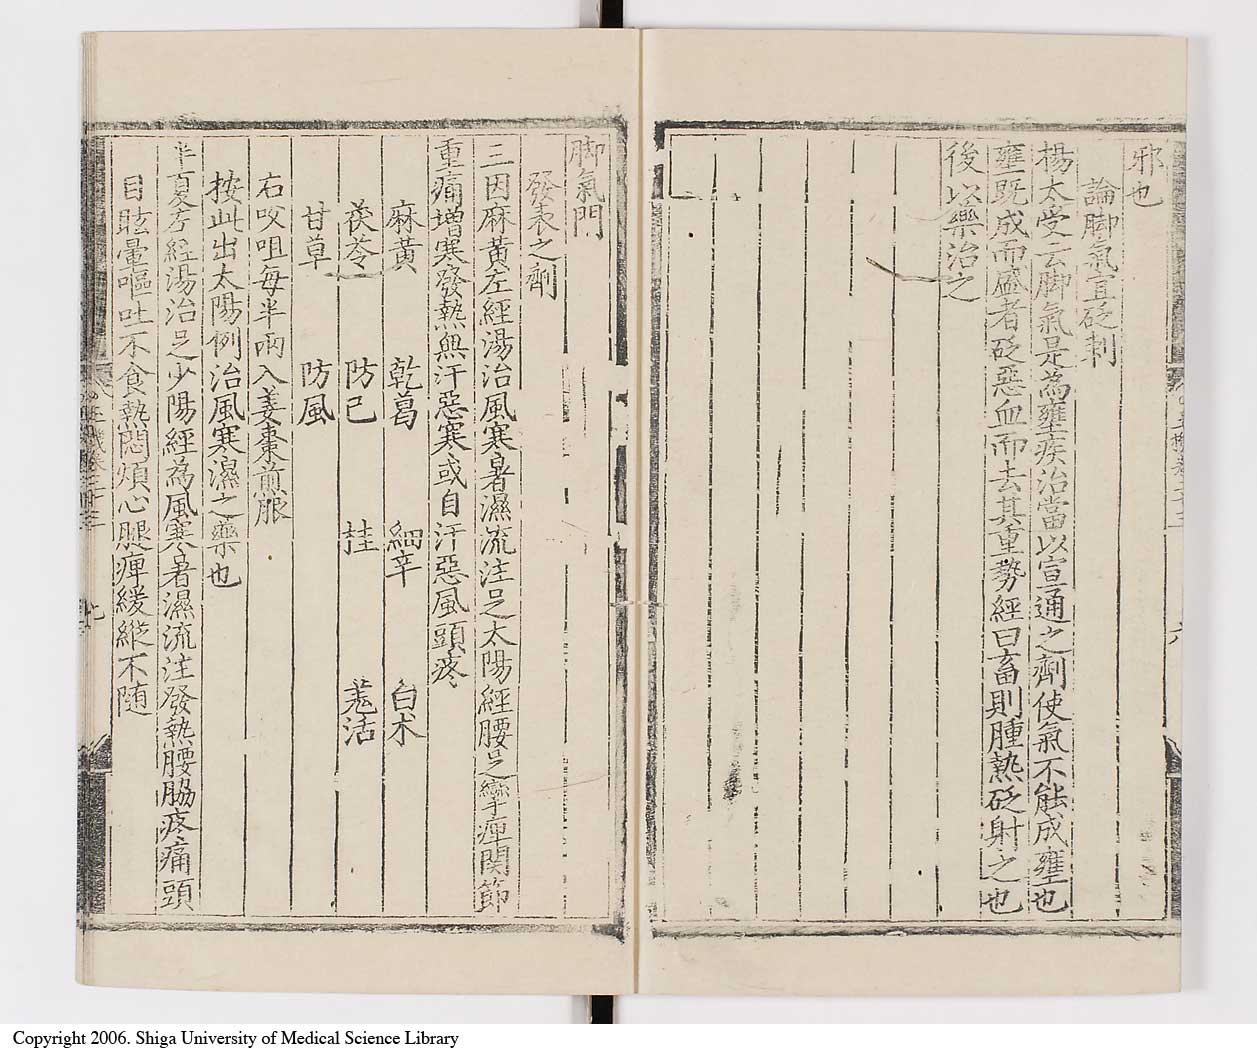 邪也
論脚氣宜砭刺
楊太受云脚氣是為壅疾治當以宣通之劑使氣不能成壅也
壅既成而盛者砭惡血而去其重勢經曰畜則腫熱砭射之也
後以藥治之
六
脚氣門
發表之劑
三因麻黄左經湯治風寒暑濕流注足太陽經腰足攣痺関節
重痛增寒發熱無汗惡寒或自汗惡風頭疼
麻黄 乾葛 細辛 白术
茯苓 防己 桂 羗活
甘草 防風
右㕮咀每半兩入姜棗煎服
按此出太陽例治風寒濕之藥也
半夏左經湯治足少陽經為風寒暑濕流注發熱腰脇疼痛頭
目眩暈嘔吐不食熱悶煩心腿痺緩縱不随
七
Copyright 2006. Shiga University of Medical Science Library